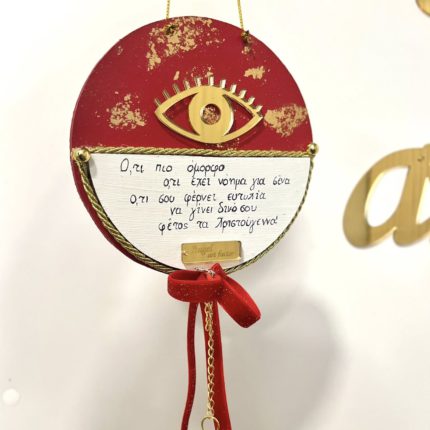 Ο,τι πιο όμορφο
ο,τι έχει νόημα για σένα
Ο,τι σου φέρνει ευτυχία
να γίνει δικό σου
φέτος τα Χριστούγεννα!
Angel